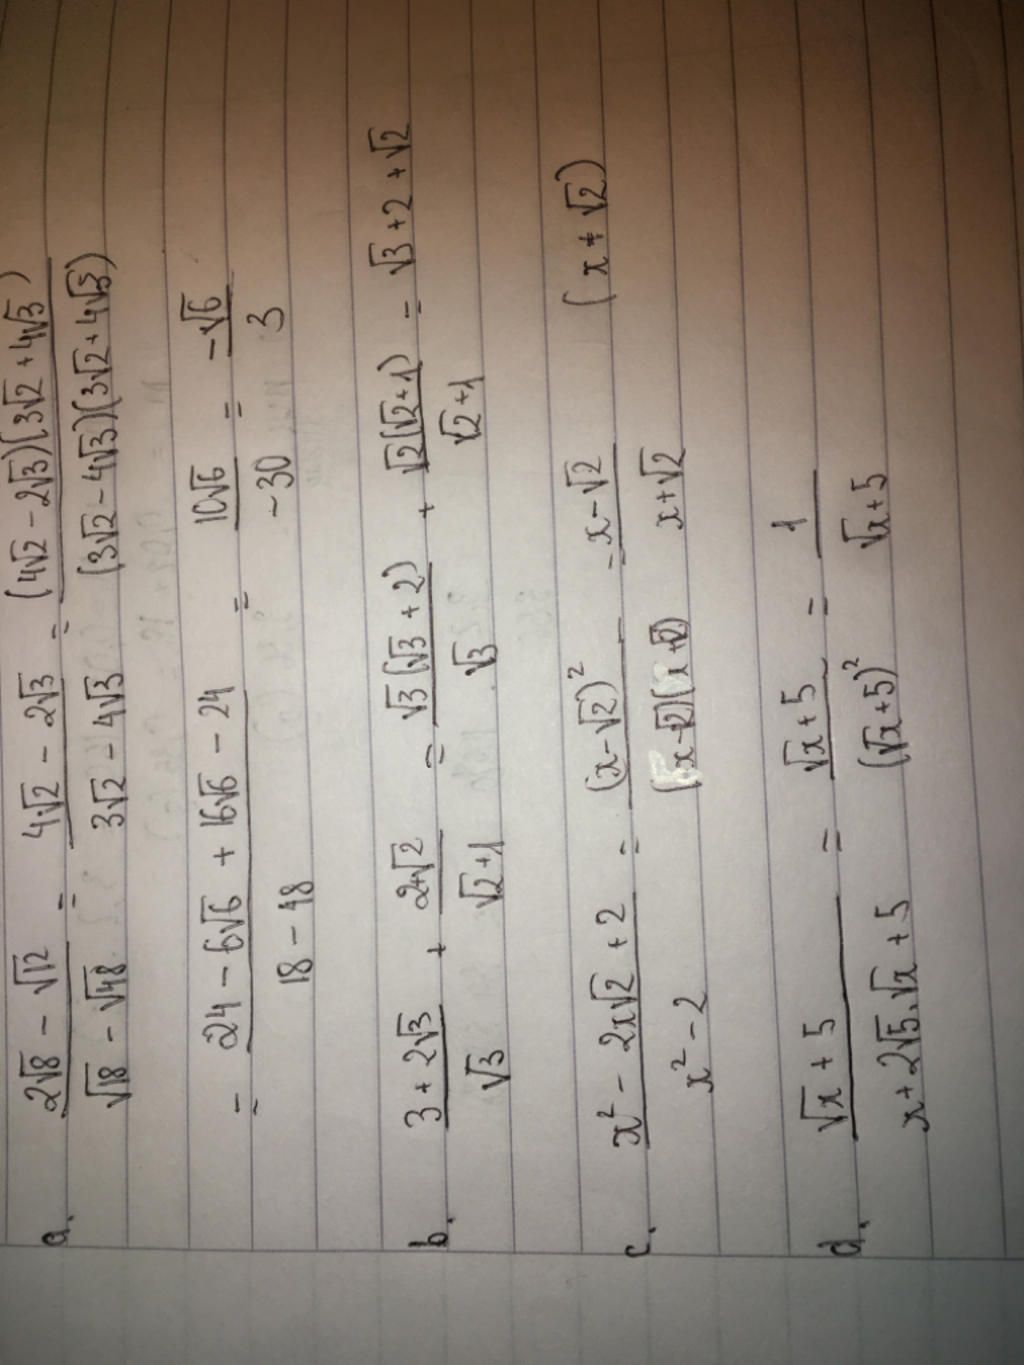 a. (2√8 - √12)/(√18 - √48) = (4√2 - 2√3)/(3√2 - 4√3) = ((4√2 - 2√3)(3√2 + 4√3))/((3√2 - 4√3)(3√2 + 4√3))
= (24 - 6√6 + 16√6 - 24)/(18 - 48) = (10√6)/(-30) = (-√6)/3
b. (3 + 2√3)/√3 + (2+√2)/(√2+1) = (√3(√3 + 2))/√3 + (√2(√2+1))/(√2+1) = √3 + 2 + √2
c. (x² - 2x√2 + 2)/(x² - 2) = (x-√2)²/((x-√2)(x+√2)) = (x-√2)/(x+√2) (x ≠ √2)
d. (√x + 5)/(x + 2√5.√x + 5) = (√x + 5)/(√x+5)² = 1/(√x+5)